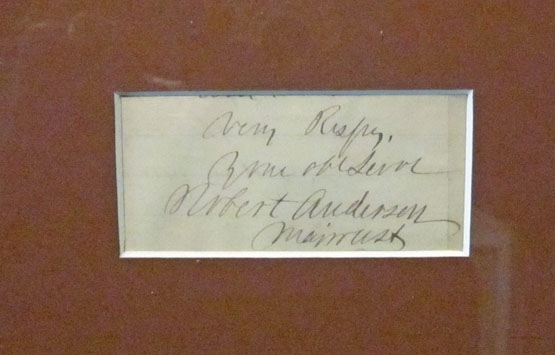 Very Respy,
Your obt Servt
Robert Anderson
Major USA